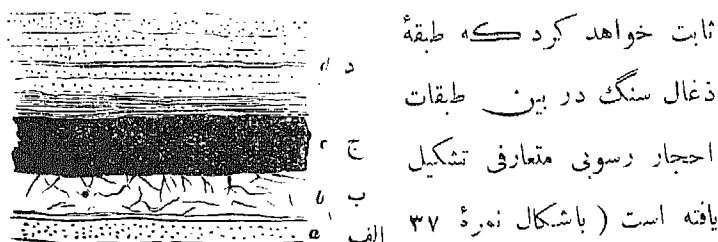 ثابت خواهد کرد که طبقهٔ
ذغال سنگ در بین طبقات
احجار رسوبی متعارفی تشکیل
یافته است ( باشکال نمرهٔ ۳۷
د d
ج c
ب b
الف a